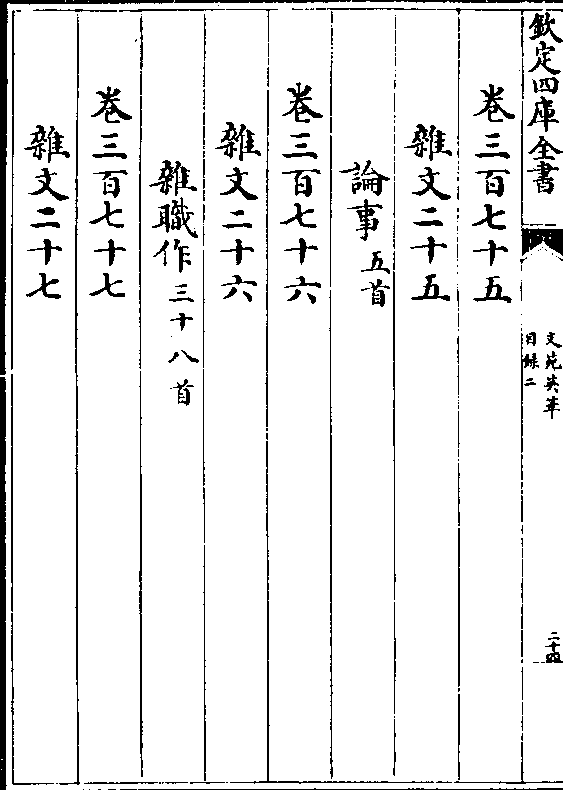 欽定四庫全書
文苑英華
目錄二
二十四
卷三百七十五
雜文二十五
論事五首
卷三百七十六
雜文二十六
雜職作三十八首
卷三百七十七
雜文二十七